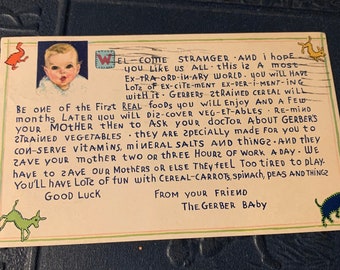 WEL-COME STRANGER - AND I HOPE
YOU LIKE US ALL - THIS IS A MOST
EX-TRA-ORD-IN-ARY WORLD. YOU WILL HAVE
LOTS OF EX-CITE-MENT EX-PER-I-MENT-ING
WITH IT - GERBERS STRAINED CEREAL WILL
BE ONE OF THE FIRST REAL FOODS YOU WILL ENJOY AND A FEW
MONTHS LATER YOU WILL DIZ-COVER VEG-ET-ABLES - RE-MIND
YOUR MOTHER THEN TO ASK YOUR DOCTOR ABOUT GERBER'S
STRAINED VEGETABLES - THEY ARE SPECIALLY MADE FOR YOU TO
CON-SERVE VITAMINS, MINERAL SALTS AND THINGS - AND THEY
SAVE YOUR MOTHER TWO OR THREE HOURS OF WORK A DAY. WE
HAVE TO SAVE OUR MOTHERS OR ELSE THEY FEEL TOO TIRED TO PLAY.
YOU'LL HAVE LOTS OF FUN WITH CEREAL - CARROTS, SPINACH, PEAS AND THINGS
GOOD LUCK FROM YOUR FRIEND
THE GERBER BABY